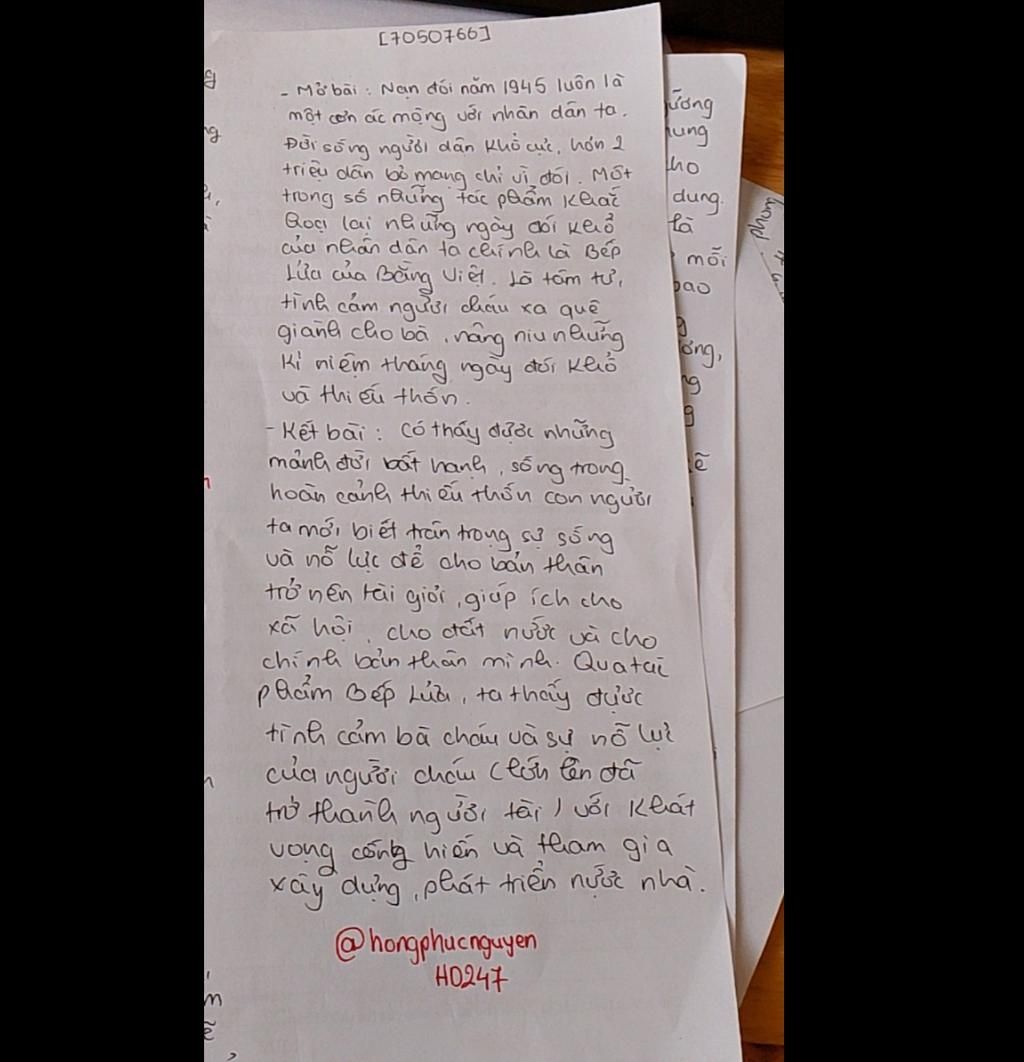 [7050766]
- Mở bài : Nạn đói năm 1945 luôn là
một cơn ác mộng với nhân dân ta.
Đời sống người dân khổ cực, hơn 2
triệu dân bỏ mạng chỉ vì đói. Một
trong số những tác phẩm khắc
họa lại những ngày đói khổ
của nhân dân ta chính là Bếp
Lửa của Bằng Việt. Là tâm tư,
tình cảm người cháu xa quê
giành cho bà, nâng niu những
kỉ niệm tháng ngày đói khổ
và thiếu thốn.
- Kết bài : Có thấy được những
mảnh đời bất hạnh, sống trong
hoàn cảnh thiếu thốn con người
ta mới biết trân trọng sự sống
và nỗ lực để cho bản thân
trở nên tài giỏi, giúp ích cho
xã hội, cho đất nước và cho
chính bản thân mình. Qua tác
phẩm Bếp Lửa, ta thấy được
tình cảm bà cháu và sự nỗ lực
của người cháu (lớn lên đã
trở thành người tài) với khát
vọng cống hiến và tham gia
xây dựng, phát triển nước nhà.
@hongphucnguyen
HD247
ương
hung
cho
dung.
là
mỗi
bao
phong